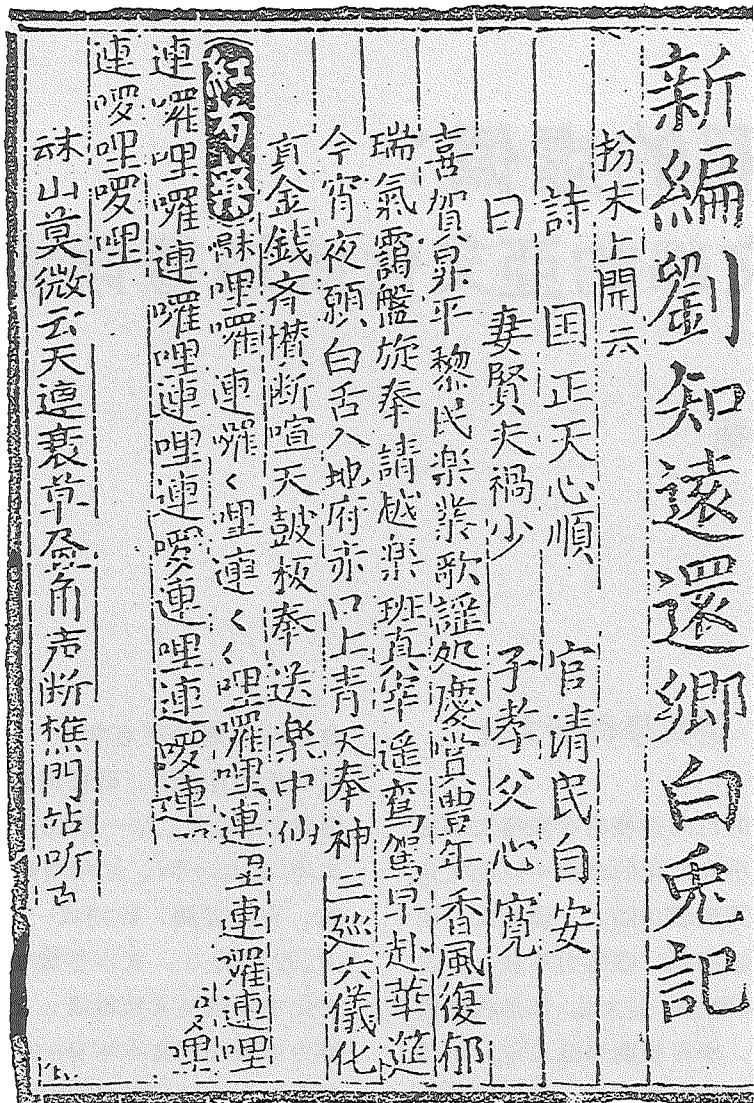 新編劉知遠還鄉白兎記
扮末上開云
詩 国正天心順 官清民自安
曰 妻賢夫禍少 子孝父心寛
喜賀昇平黎民楽業歌謡処慶賞豊年香風復郁
瑞氣靄盤旋奉請越楽班真宰遥鸞駕早赴華筵
今宵夜願白舌入地府赤口上青天奉神三廵六儀化
真金銭斉攅断喧天鼓板奉送楽中仙
紅芍薬 哩囉連囉〱哩連〱〱哩囉哩連哩連囉連哩
連囉哩囉連囉哩連哩連啰連哩連啰連 哩
連啰哩啰哩
末山莫微云天連衰草 声断樵門